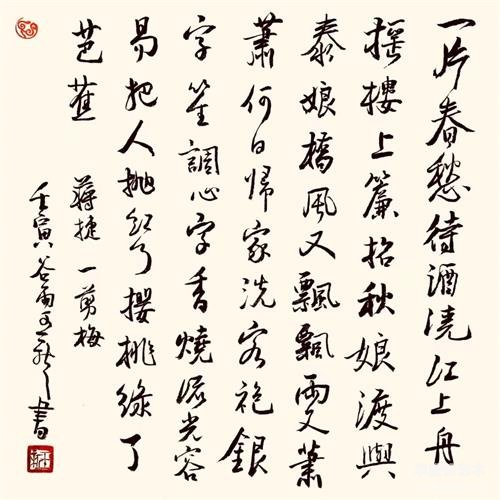 一片春愁待酒澆江上舟
搖樓上簾招秋娘渡與
泰娘橋風又飄飄雨又蕭
蕭何日歸家洗客袍銀
字笙調心字香燒流光容
易把人拋紅了櫻桃綠了
芭蕉
蔣捷 一剪梅
壬寅谷雨書